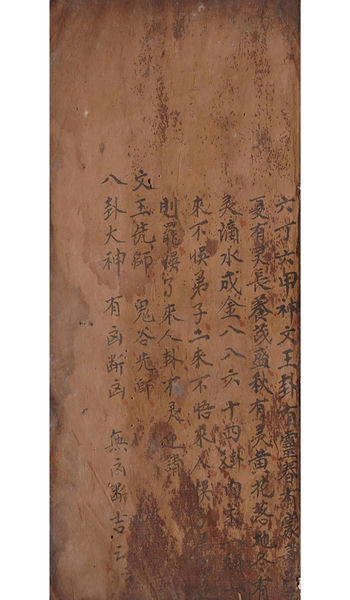 六丁六甲神文王卦有靈春有
夏有灵長養茂盛秋有灵黄花落地冬有
灵滴水成金八八六十四卦内
來不悞弟子二來不悟來人悞
則罪悞了來人卦不灵
文王先師 鬼谷先師
八卦大神 有凶斷凶 無凶斷吉云